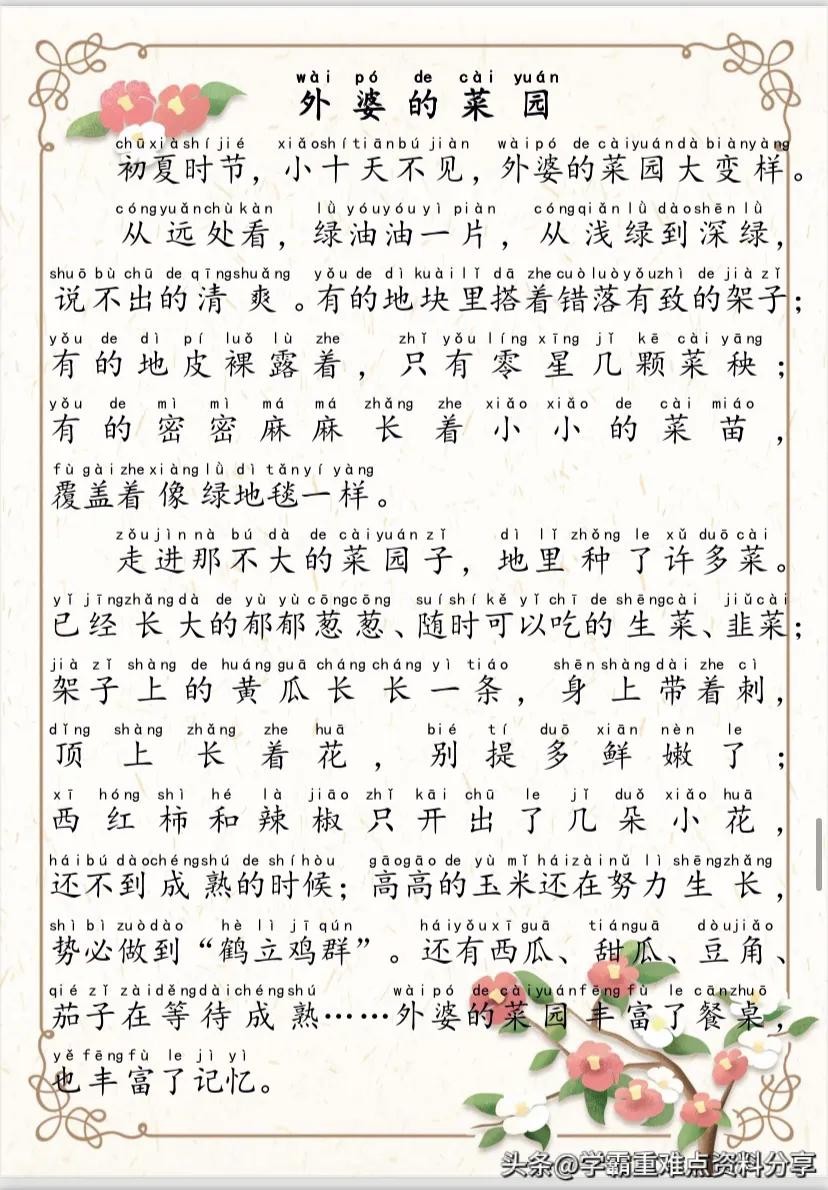 wài pó de cài yuán
外婆的菜园
chūxiàshíjié xiǎoshítiānbújiàn wàipó de càiyuándàbiànyàng
初夏时节，小十天不见，外婆的菜园大变样。
cóngyuǎnchùkàn lǜyóuyóuyìpiàn cóngqiǎnlǜdàoshēnlǜ
从远处看，绿油油一片，从浅绿到深绿，
shuōbùchū de qīngshuǎng yǒude dìkuàilǐdā zhecuòluòyǒuzhì de jiàzǐ
说不出的清爽。有的地块里搭着错落有致的架子；
yǒu de dì pí luǒ lù zhe zhǐ yǒu líng xīng jǐ kē cài yāng
有的地皮裸露着，只有零星几颗菜秧；
yǒu de mì mì má má zhǎng zhe xiǎo xiǎo de cài miáo
有的密密麻麻长着小小的菜苗，
fùgàizhexiànglǜdìtǎnyíyàng
覆盖着像绿地毯一样。
zǒujìnnà búdà de càiyuánzǐ dì lǐ zhǒng le xǔduōcài
走进那不大的菜园子，地里种了许多菜。
yǐjīngzhǎngdà de yùyùcōngcōng suíshíkěyǐchī de shēngcài jiǔcài
已经长大的郁郁葱葱、随时可以吃的生菜、韭菜；
jià zǐ shàng de huángguā chángcháng yì tiáo shēnshàngdài zhe cì
架子上的黄瓜长长一条，身上带着刺，
dǐng shàng zhǎng zhe huā bié tí duō xiān nèn le
顶上长着花，别提多鲜嫩了；
xī hóng shì hé là jiāo zhǐ kāi chū le jǐ duǒ xiǎo huā
西红柿和辣椒只开出了几朵小花，
háibúdàochéngshú de shíhòu gāogāo de yùmǐháizàinǔlìshēngzhǎng
还不到成熟的时候；高高的玉米还在努力生长，
shìbìzuòdào hè lì jī qún háiyǒuxīguā tiánguā dòujiǎo
势必做到“鹤立鸡群”。还有西瓜、甜瓜、豆角、
qiézǐzàiděngdàichéngshú wàipó de càiyuánfēngfù le cānzhuō
茄子在等待成熟……外婆的菜园丰富了餐桌，
yěfēngfù le jìyì
也丰富了记忆。
头条@学霸重难点资料分享